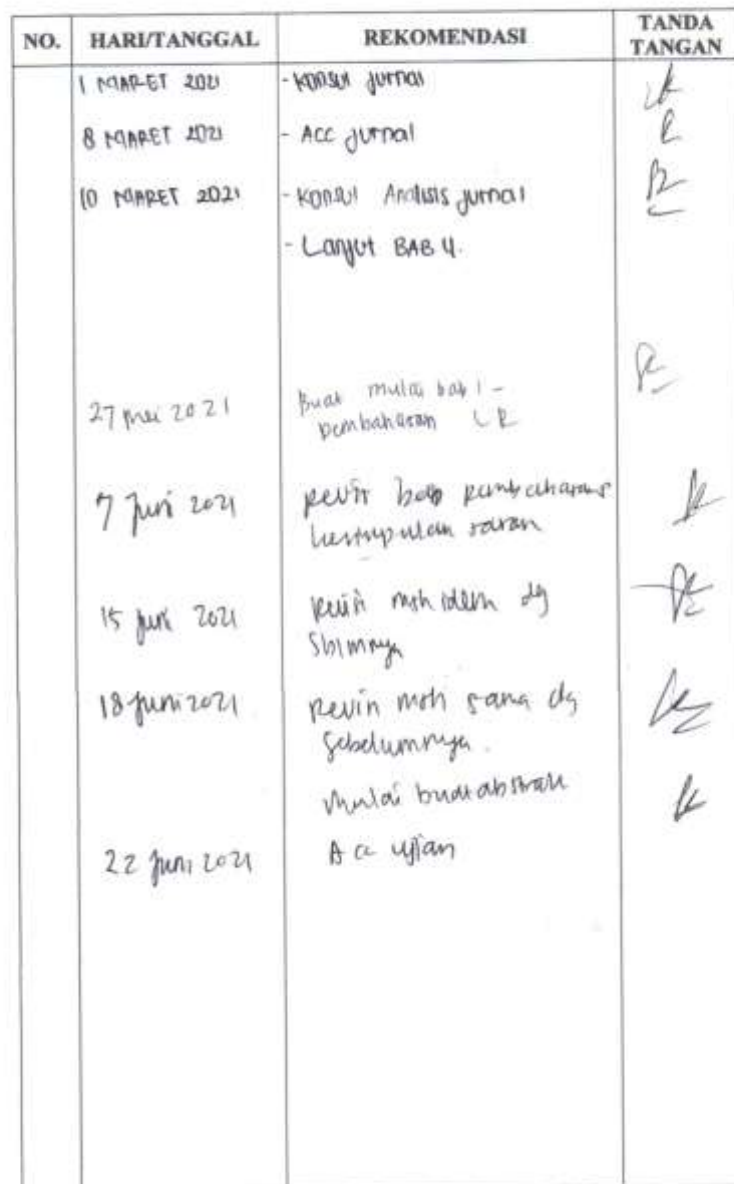 NO. HARI/TANGGAL REKOMENDASI TANDA TANGAN
1 MARET 2021 - Konsul jurnal
8 MARET 2021 - Acc jurnal
10 MARET 2021 - Konsul Analisis jurnal
- Lanjut BAB 4.
27 mei 2021 Buat mulai bab 1 -
pembahasan LR
7 Juni 2021 revisi bab pembahasan
kesimpulan saran
15 juni 2021 revisi msh idem dg
Sblmnya
18 juni 2021 revisi msh sama dg
sebelumnya.
mulai buat abstrak
22 juni 2021 Acc ujian